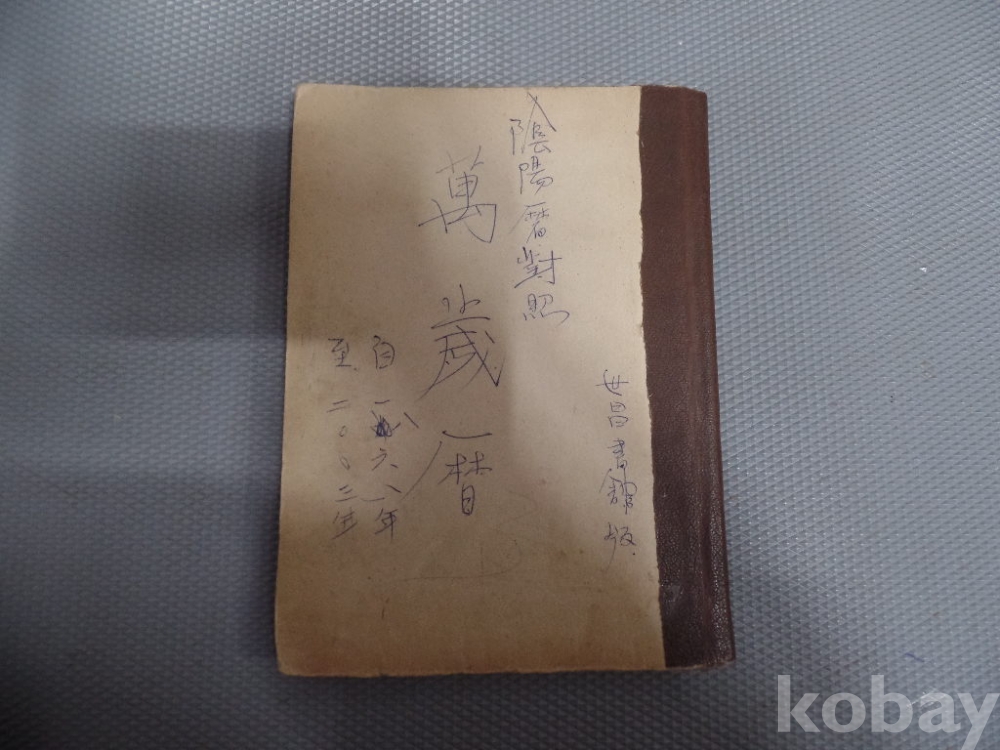 陰陽曆對照
萬歲曆
自一八六八年
至二〇〇三年
世昌書館版
kobay